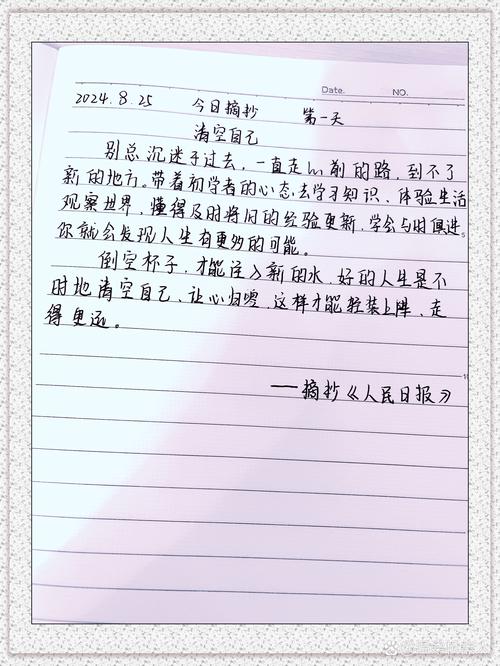 Date. NO.
2024.8.25 今日摘抄 第一天
清空自己
别总沉迷于过去,一直走以前的路,到不了
新的地方。带着初学者的心态去学习知识、体验生活
观察世界,懂得及时将旧的经验更新,学会与时俱进,
你就会发现人生有更多的可能。
倒空杯子,才能注入新的水,好的人生是不
时地清空自己、让心归零,这样才能轻装上阵、走
得更远。
——摘抄《人民日报》